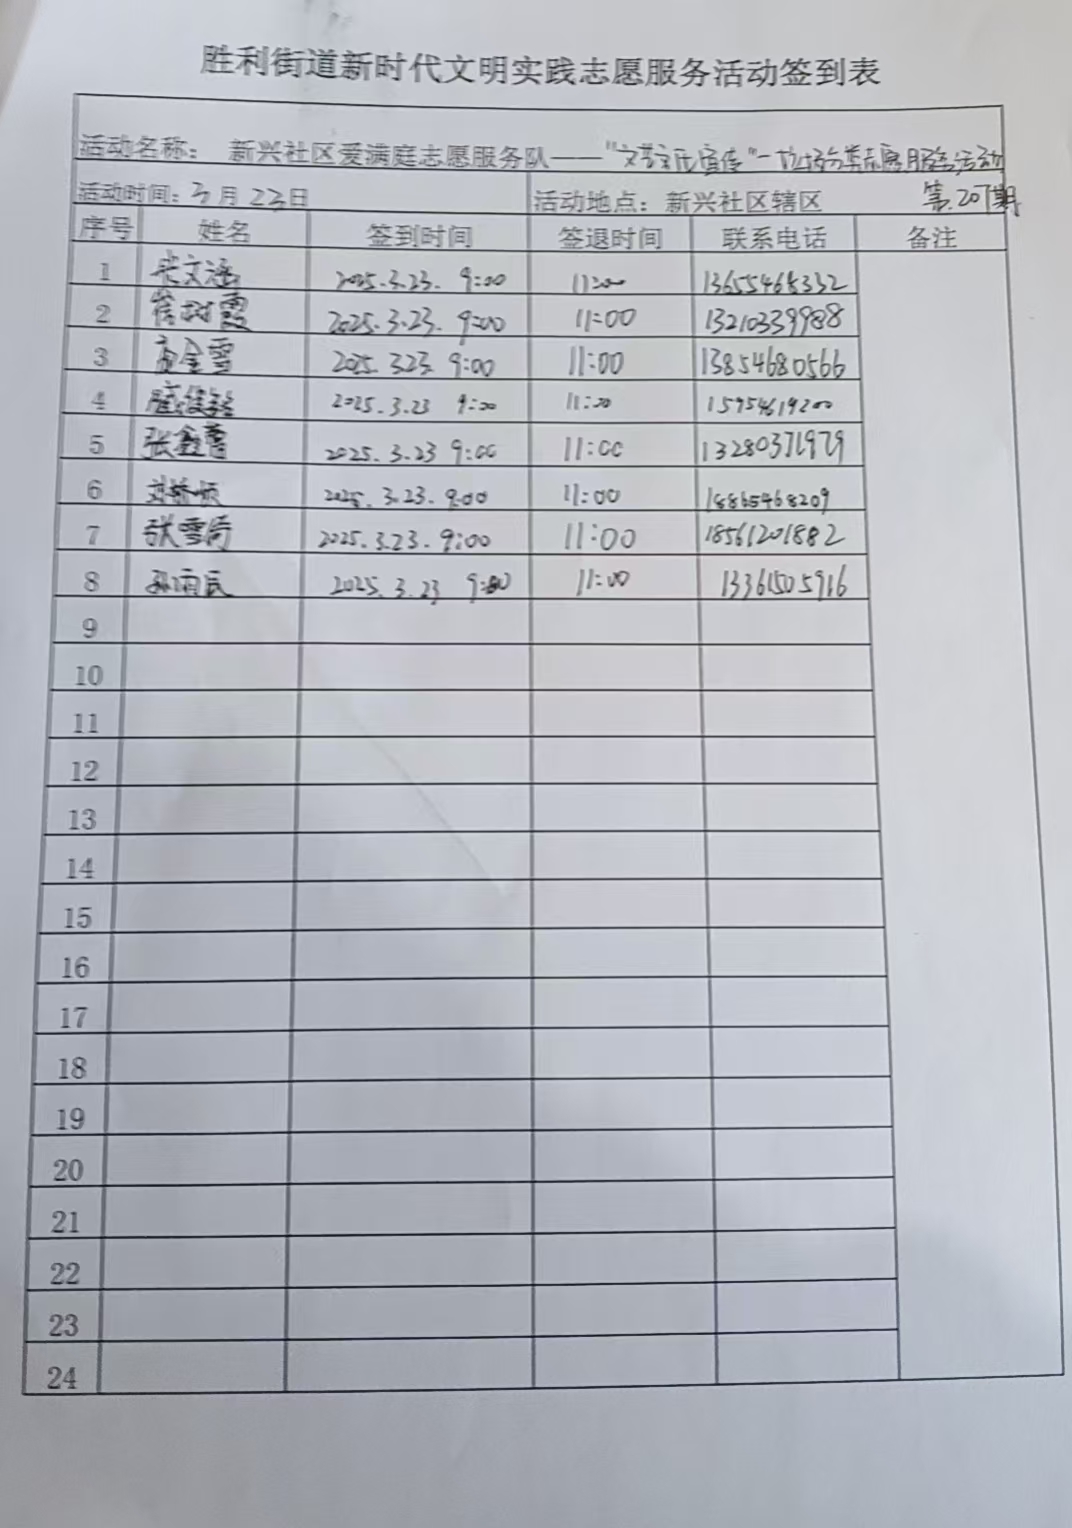 胜利街道新时代文明实践志愿服务活动签到表
活动名称： 新兴社区爱满庭志愿服务队——"文艺宣传"一垃圾分类志愿服务活动
活动时间：3月23日 活动地点：新兴社区辖区 第207期
序号 姓名 签到时间 签退时间 联系电话 备注
1 文涵 2025.3.23. 9:00 11:00 13655468332
2 树霞 2025.3.23. 9:00 11:00 13210339988
3 金雪 2025.3.23. 9:00 11:00 13854680566
4 2025.3.23 9:00 11:00 15954619200
5 张鑫蕾 2025.3.23 9:00 11:00 13280371979
6 刘 2025.3.23. 9:00 11:00 18865468209
7 张雪倚 2025.3.23. 9:00 11:00 18561201882
8 孙雨辰 2025.3.23 9:00 11:00 13361505916
9
10
11
12
13
14
15
16
17
18
19
20
21
22
23
24